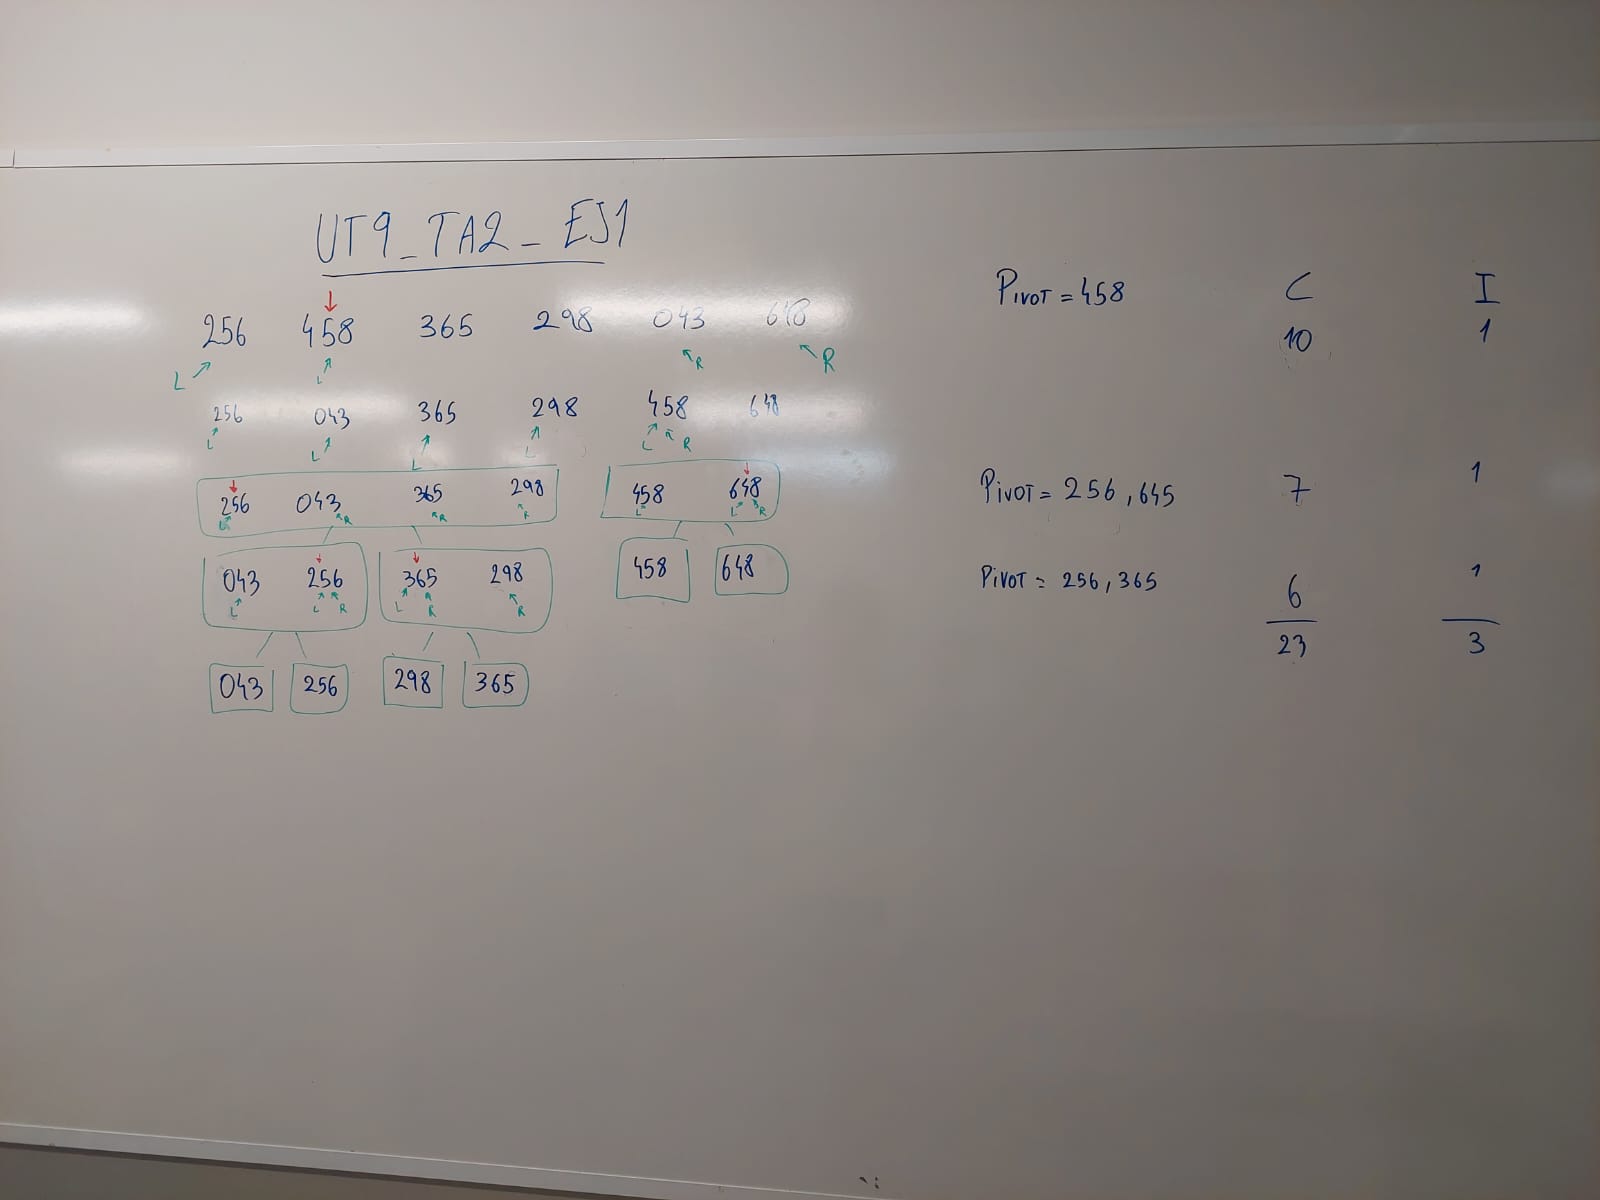 UT9_TA2_EJ1
256 458 365 298 043 648
L L R R
256 043 365 298 458 648
L L L L L R
256 043 365 298 458 648
L R R R L L R
043 256 365 298 458 648
L L R L R R
043 256 298 365
Pivot = 458 C I
10 1
Pivot = 256, 645 7 1
Pivot = 256, 365 6 1
23 3